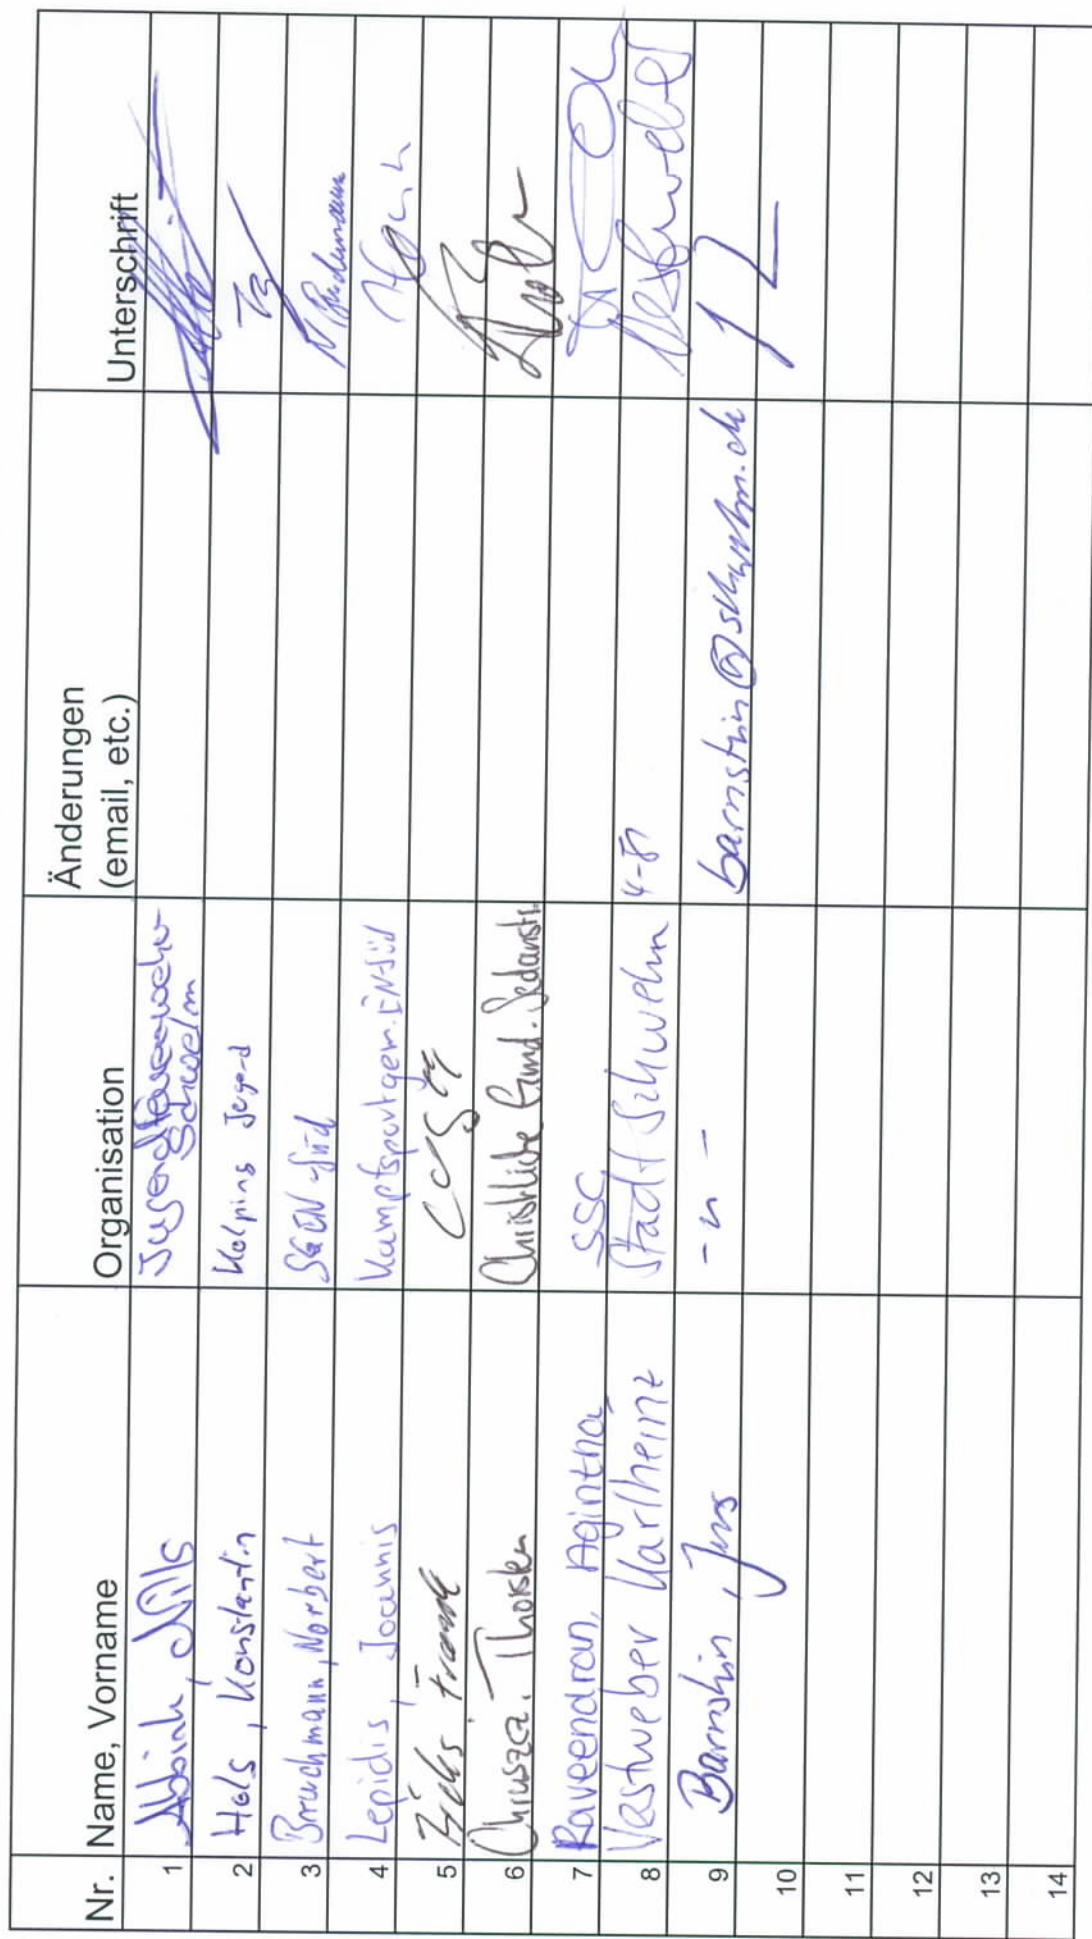 Nr. Name, Vorname Organisation Änderungen (email, etc.) Unterschrift
1 Nils Jugendfeuerwehr Schwelm
2 Hols, Konstantin Kolping Jugend
3 Bruchmann, Norbert SGEN-Süd
4 Lepidis, Joannis Kampfsportgem. EN-Süd
5 Frank
6 Thorsten Christliche Gmd. Sedanstr.
7 Raveendran, Agintha SSC
8 Vestweber Karlheinz Stadt Schwelm Vestweber
9 Barnstein, Jens - " - barnstein@schwelm.de
10
11
12
13
14